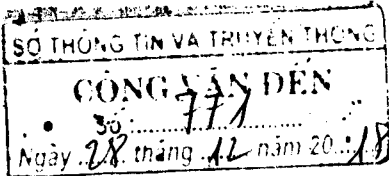 SỞ THÔNG TIN VÀ TRUYỀN THÔNG
CÔNG VĂN ĐẾN
Số: 771
Ngày 28 tháng 12 năm 2018